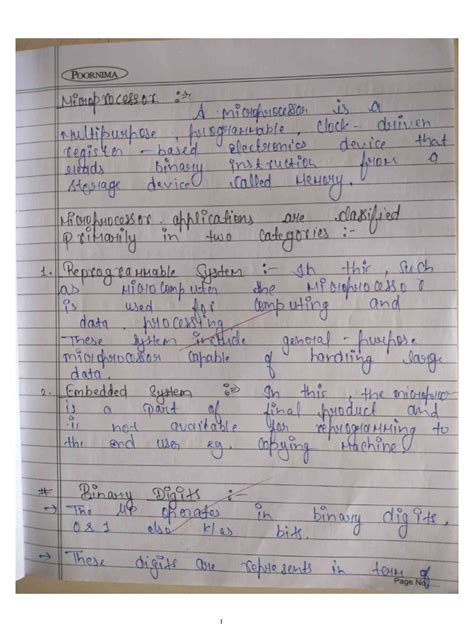 POORNIMA
Microprocessor :-
A microprocessor is a
multipurpose, programmable, clock-driven
register-based electronics device that
reads binary instruction from a
storage device called Memory.
Microprocessor applications are classified
primarily in two categories :-
1. Reprogrammable System :- In this, such
as Microcomputer the Microprocessor
is used for computing and
data processing
These system include general-purpose
microprocessor capable of handling large
data.
2. Embedded System :- In this, the micropro-
is a part of final product and
is not available for reprogramming to
the end user eg. copying machine.
# Binary Digits :-
→ The MP operates in binary digits,
0 & 1 also k/as bits.
→ These digits are represents in term of
Page No.
1